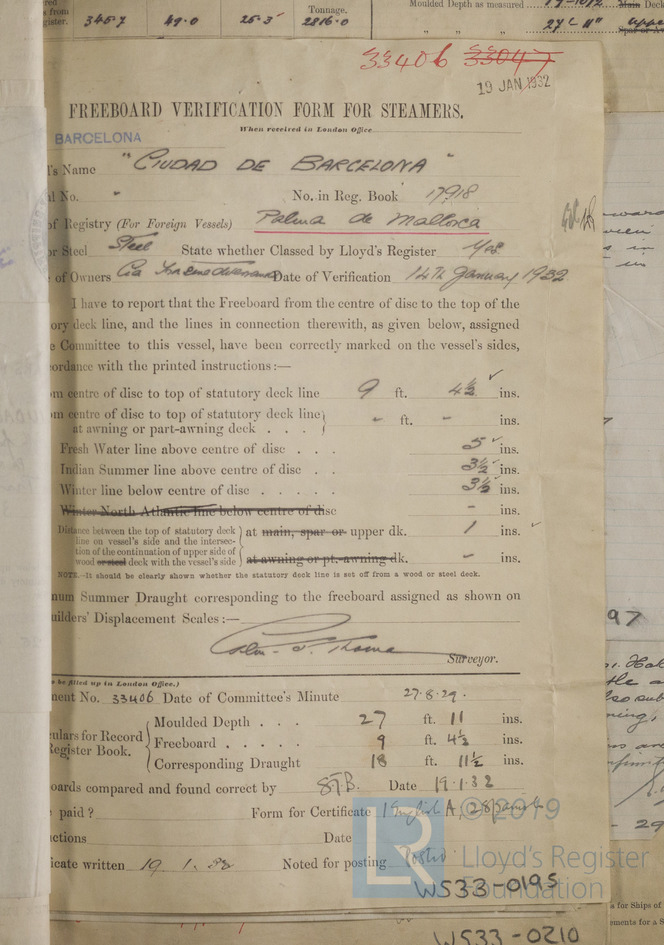 345.7 49.0 25.3 Tonnage. 2816.0
Moulded Depth as measured
33406 33047
19 JAN 1932
FREEBOARD VERIFICATION FORM FOR STEAMERS.
When received in London Office
BARCELONA
's Name "CIUDAD DE BARCELONA"
l No. " No. in Reg. Book 17918
of Registry (For Foreign Vessels) Palma de Mallorca
or Steel Steel State whether Classed by Lloyd's Register Yes.
of Owners Cia Date of Verification 14th January 1932
I have to report that the Freeboard from the centre of disc to the top of the
ory deck line, and the lines in connection therewith, as given below, assigned
e Committee to this vessel, have been correctly marked on the vessel's sides,
ordance with the printed instructions :—
om centre of disc to top of statutory deck line 9 ft. 4½ ins.
om centre of disc to top of statutory deck line
at awning or part-awning deck . . . - ft. - ins.
Fresh Water line above centre of disc . . . 5 ins.
Indian Summer line above centre of disc . . 3½ ins.
Winter line below centre of disc . . . . . 3½ ins.
Winter North Atlantic line below centre of disc - ins.
Distance between the top of statutory deck
line on vessel's side and the intersec-
tion of the continuation of upper side of
wood or steel deck with the vessel's side
at main, spar or upper dk. 1 ins.
at awning or pt.-awning dk. - ins.
NOTE.—It should be clearly shown whether the statutory deck line is set off from a wood or steel deck.
num Summer Draught corresponding to the freeboard assigned as shown on
uilders' Displacement Scales :—
Surveyor.
o be filled up in London Office.)
ment No. 33406 Date of Committee's Minute 27.8.29.
ulars for Record
Register Book.
Moulded Depth . . . 27 ft. 11 ins.
Freeboard . . . . . 9 ft. 4½ ins.
Corresponding Draught 18 ft. 11½ ins.
oards compared and found correct by Date 19.1.32
paid ? Form for Certificate 1 English A, 2 Spanish
uctions Date
icate written 19.1.32 Noted for posting Posted
LR © 2019
Lloyd's Register
Foundation
WS33-0195
WS33-0210
97
29
s for Ships of
ements for a S